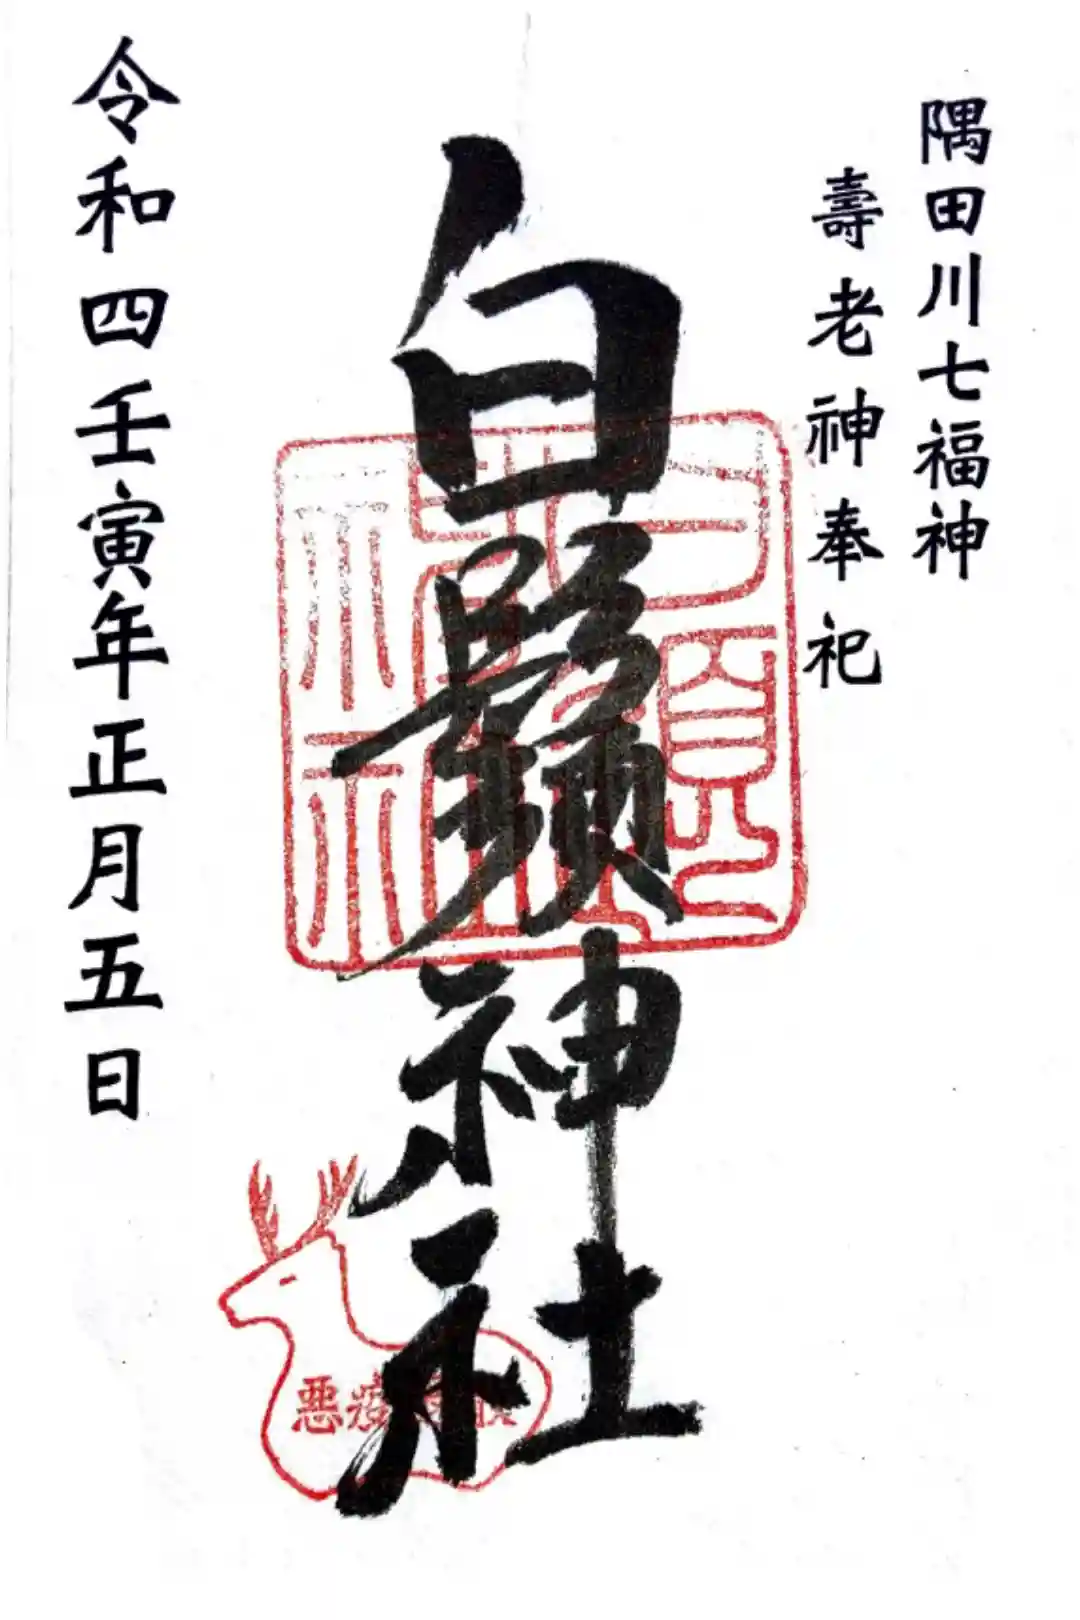 隅田川七福神
壽老神奉祀
白鬚神社
令和四壬寅年正月五日
悪疫